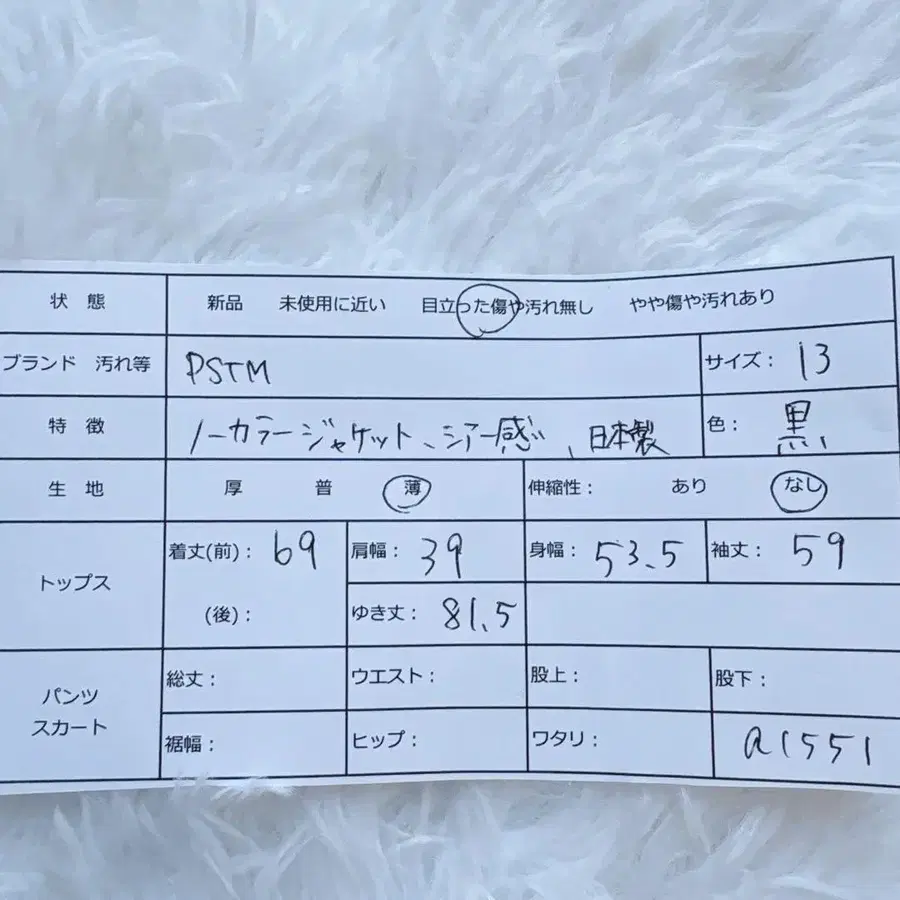 状 態 新品 未使用に近い 目立った傷や汚れ無し やや傷や汚れあり
ブランド 汚れ等 PSTM サイズ： 13
特 徴 ノーカラージャケット、シアー感、日本製 色： 黒
生 地 厚 普 薄 伸縮性： あり なし
トップス 着丈(前)： 69 肩幅： 39 身幅： 53.5 袖丈： 59
(後)： ゆき丈： 81.5
パンツ スカート 総丈： ウエスト： 股上： 股下：
裾幅： ヒップ： ワタリ： a1551